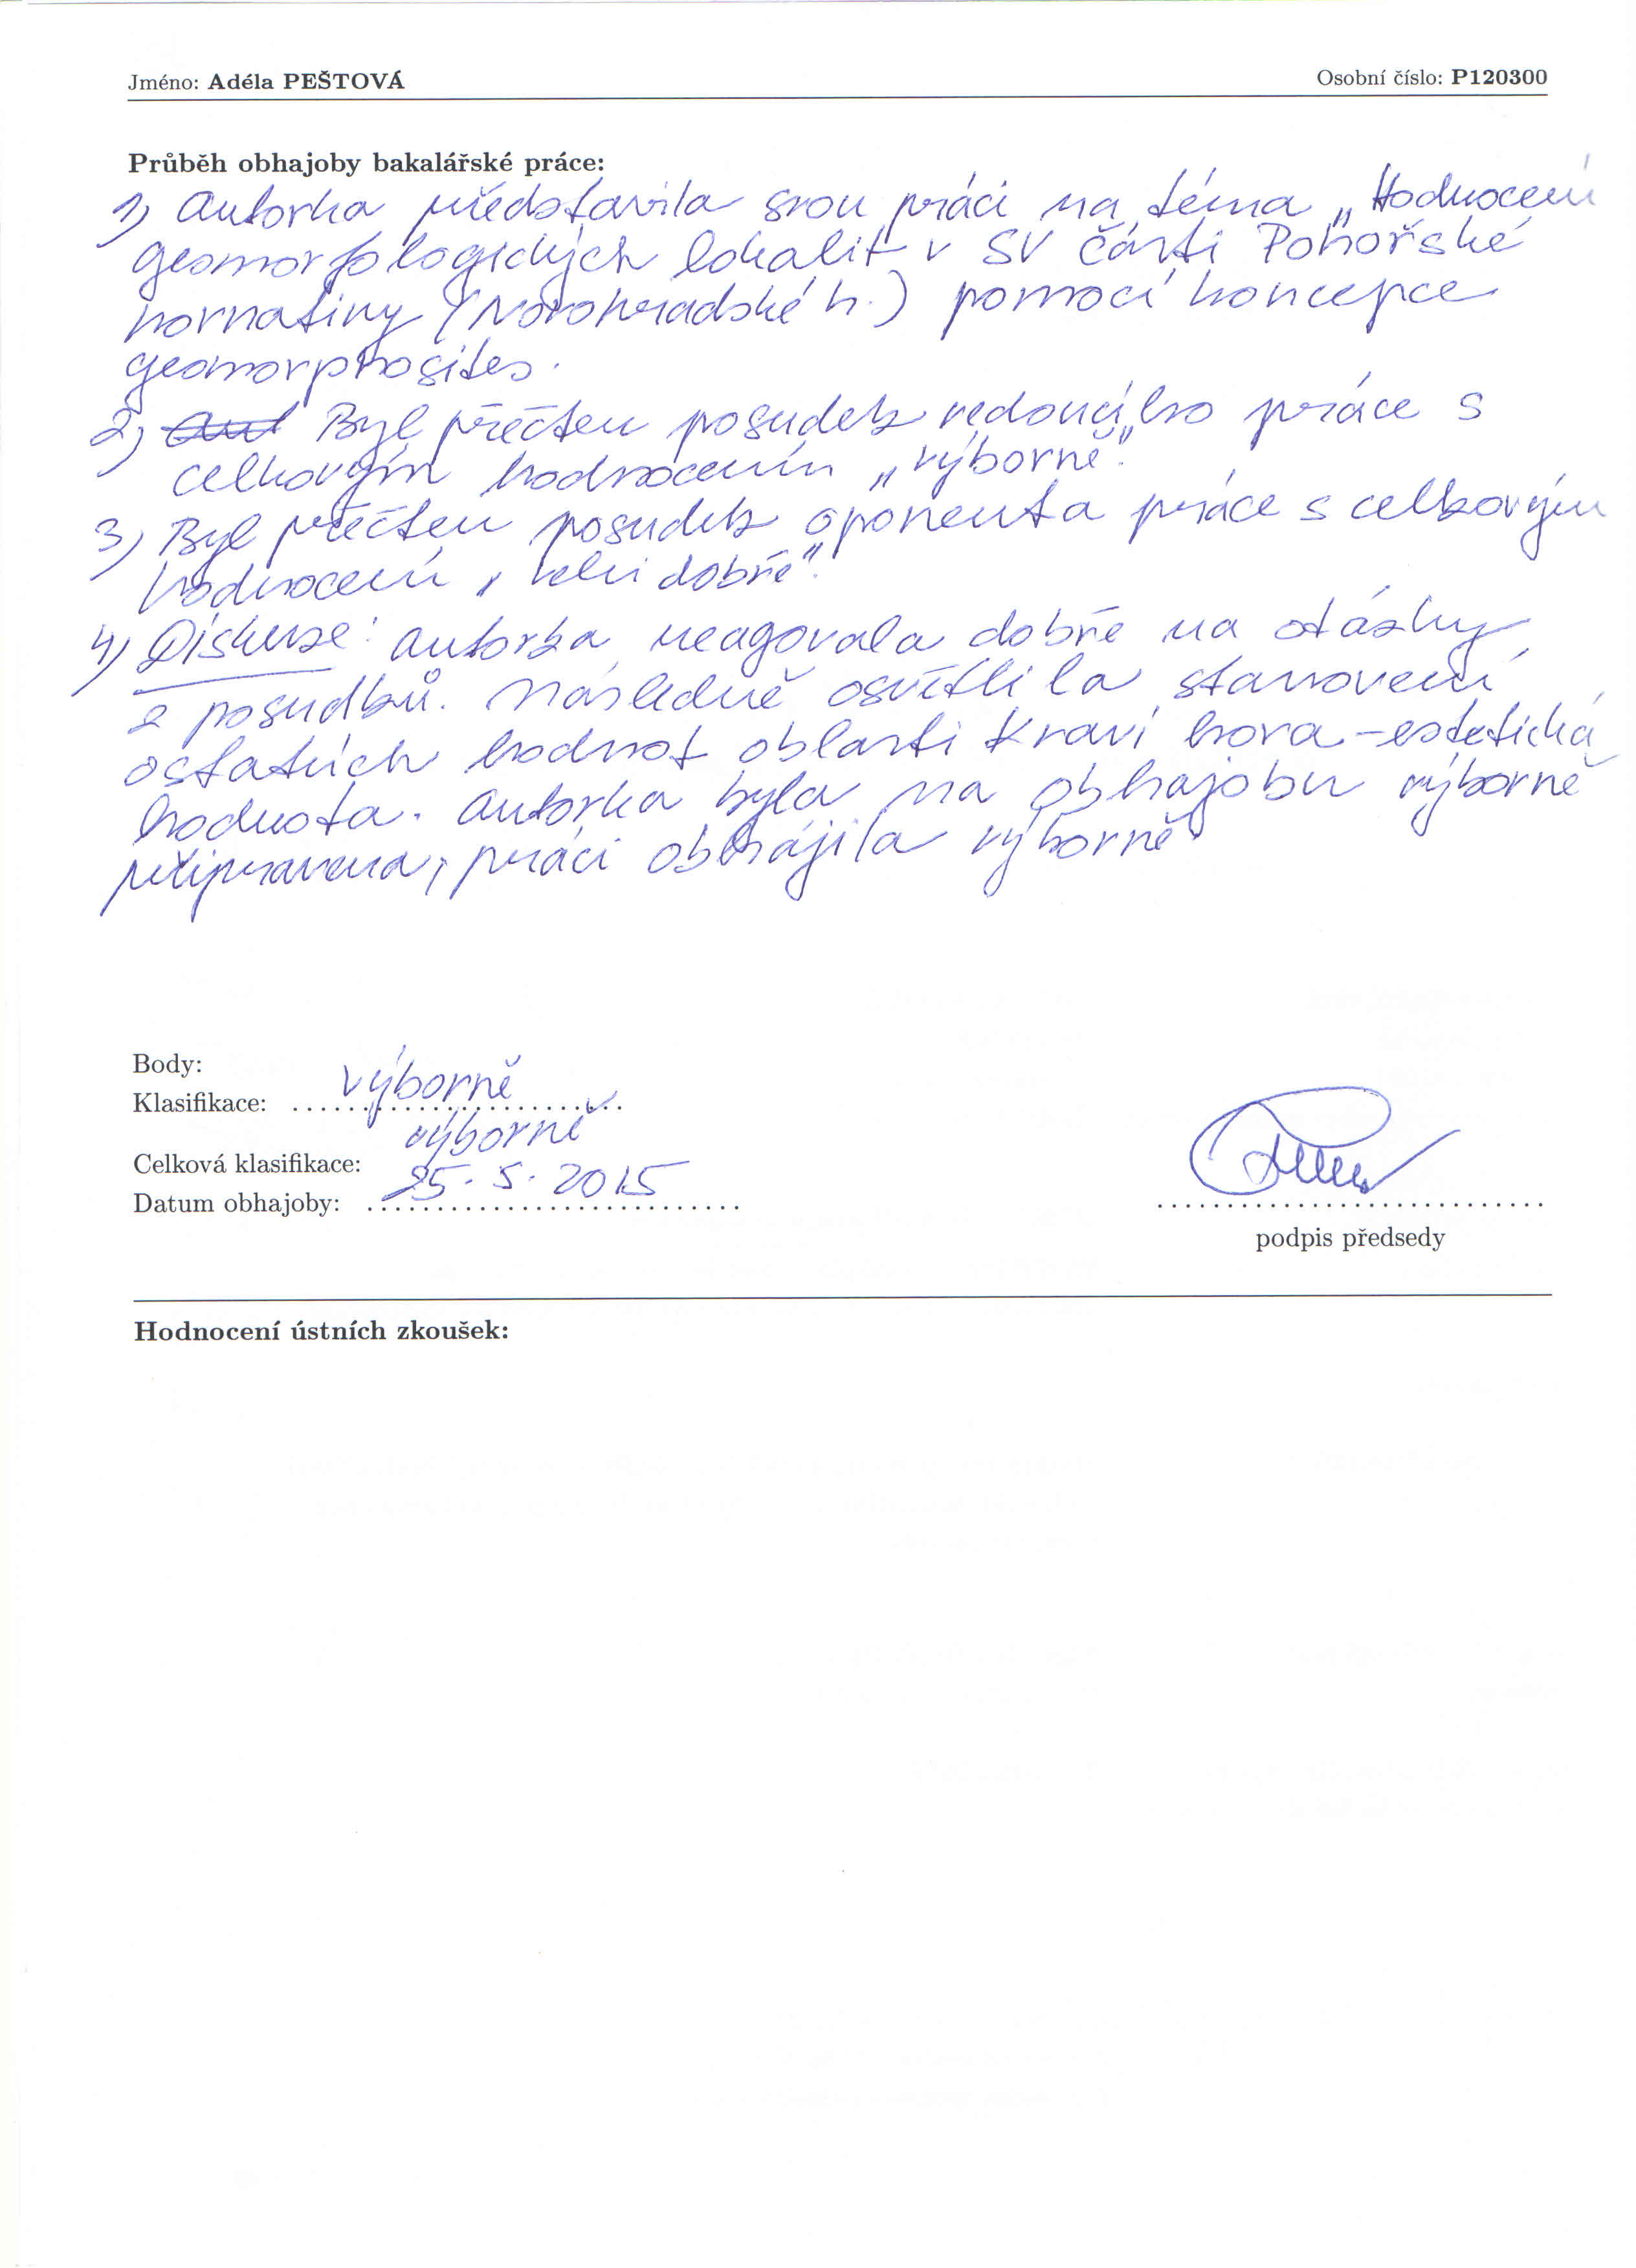 Jméno: Adéla PEŠTOVÁ Osobní číslo: P120300
Průběh obhajoby bakalářské práce:
1) Autorka představila svou práci na téma „Hodnocení
geomorfologických lokalit v SV části Pohořské
hornatiny (Novohradské h.) pomocí koncepce
geomorphosites.
2) Byl přečten posudek vedoucího práce s
celkovým hodnocením „výborně".
3) Byl přečten posudek oponenta práce s celkovým
hodnocení „velmi dobře".
4) Diskuze: autorka reagovala dobře na otázky
z posudků. Následně osvětlila stanovení
ostatních hodnot oblasti Kraví hora - estetická
hodnota. Autorka byla na obhajobu výborně
připravena, práci obhájila výborně
Body:
Klasifikace: výborně
Celková klasifikace: výborně
Datum obhajoby: 25. 5. 2015
podpis předsedy
Hodnocení ústních zkoušek: